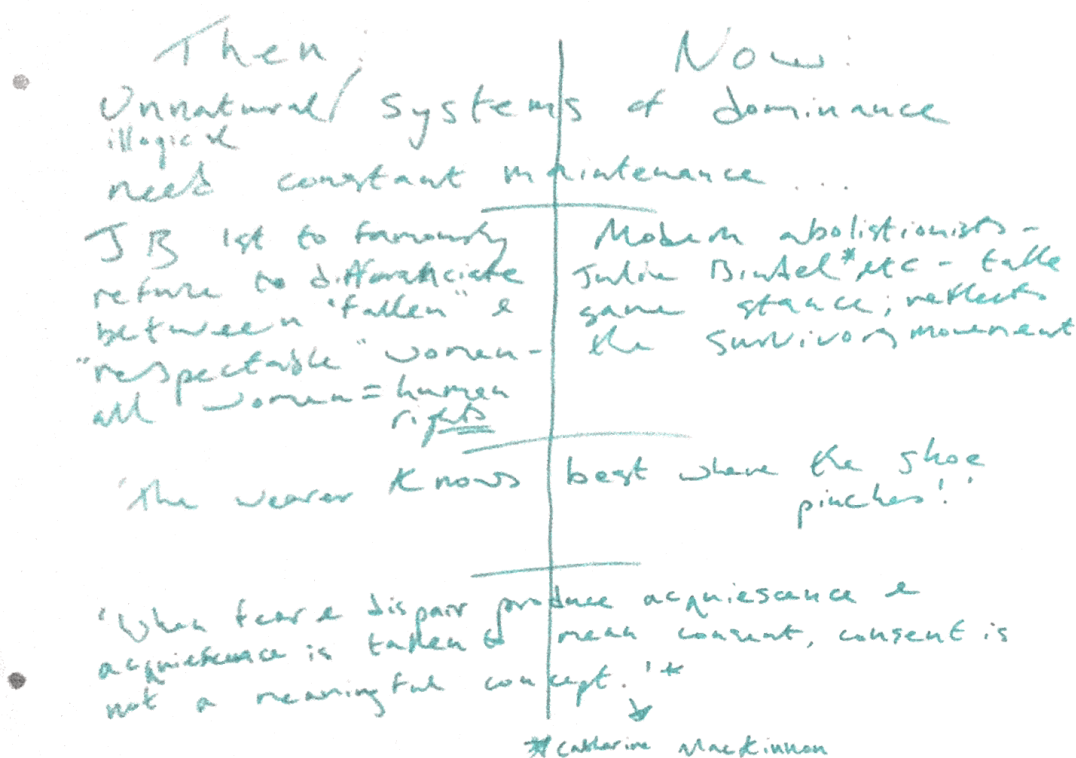 Then:
Now:
Unnatural/ systems of dominance
illogical
need constant maintenance ...
JB 1st to famously
refuse to differenciate
between "fallen" &
"respectable" women -
all women = human
rights
Modern abolistionists -
Julie Bindel* etc - take
same stance; reflects
the survivors movement
'The wearer knows best where the shoe
pinches!'
'When fear & dispair produce acquiescance &
acquiescence is taken to mean consent, consent is
not a meaningful concept.'*
* Catharine MacKinnon